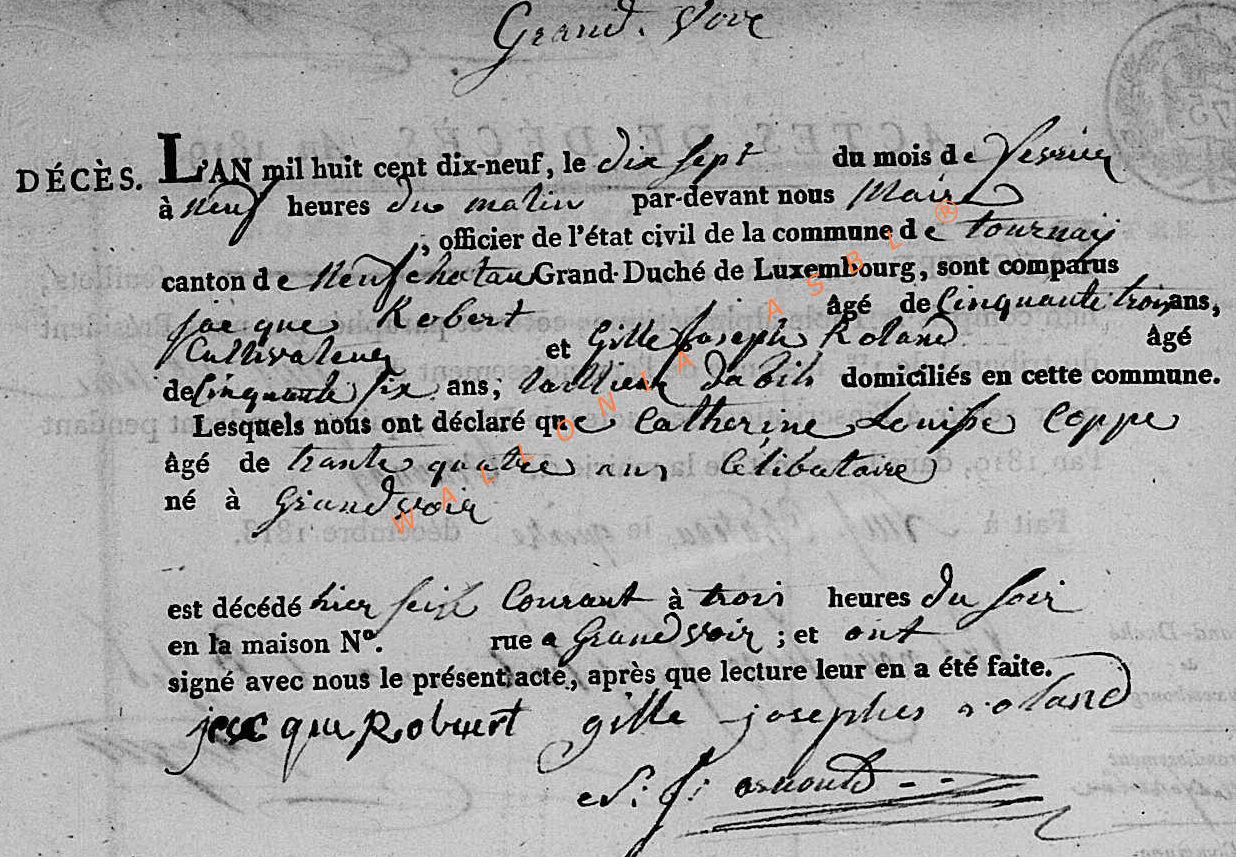 Grand. Voir
DÉCÈS. L'AN mil huit cent dix-neuf, le dix sept du mois de fevrier
à neuf heures du matin par-devant nous Maire
, officier de l'état civil de la commune de tournay
canton de Neufchatau Grand-Duché de Luxembourg, sont comparus
jacque Robert âgé de Cinquante trois ans,
Cultivateur et Gille Joseph Roland âgé
de Cinquante six ans; tailleur dabits domiciliés en cette commune.
Lesquels nous ont déclaré que Catherine Louisse Coppe
âgé de trante quatre ans Célibataire
né à Grandvoir
est décédé hier seize Courant à trois heures du soir
en la maison No. rue a Grandvoir ; et ont
signé avec nous le présent acte, après que lecture leur en a été faite.
jacque Robuert gille josephes roland
arnould
WALLONIA ASBL ®